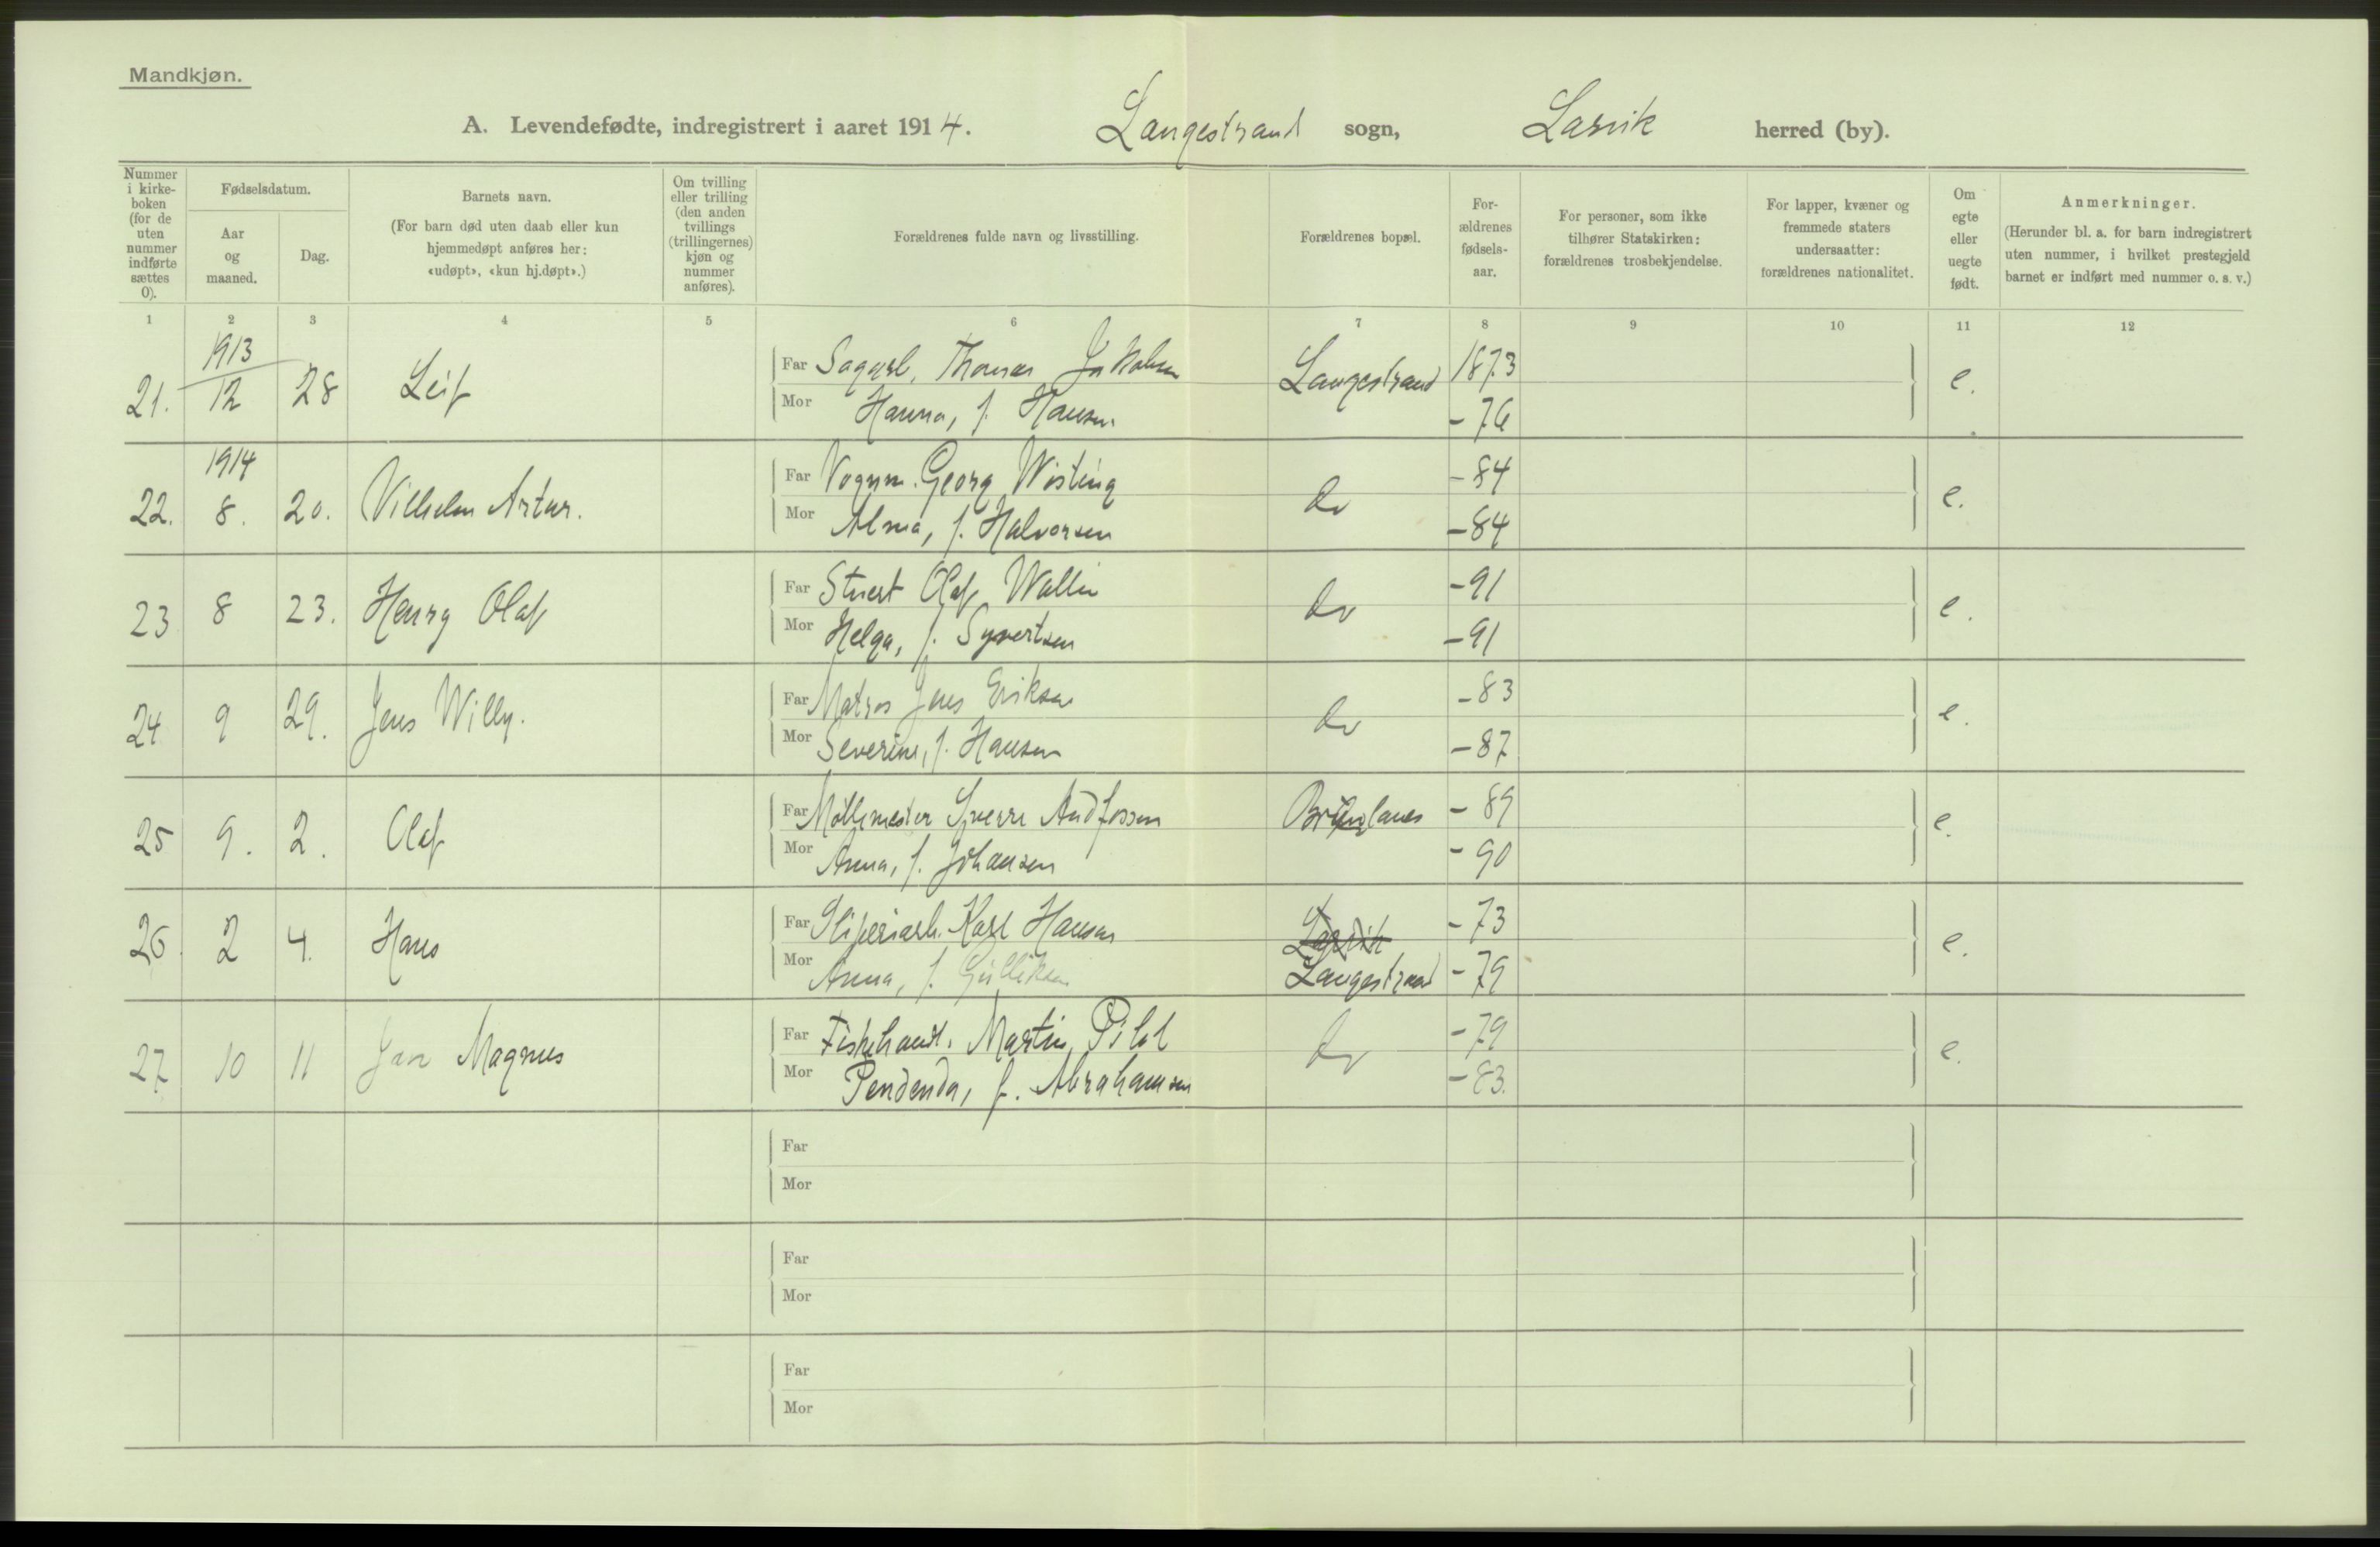 Mandkjøn.
A. Levendefødte, indregistrert i aaret 1914. Langestrand sogn, Larvik herred (by).
Nummer i kirke-boken (for de uten nummer indførte sættes 0).
Fødselsdatum.
Aar og maaned.
Dag.
Barnets navn.
(For barn død uten daab eller kun hjemmedøpt anføres her: «udøpt», «kun hj.døpt».)
Om tvilling eller trilling (den anden tvillings (trillingernes) kjøn og nummer anføres).
Forældrenes fulde navn og livsstilling.
Forældrenes bopæl.
For-ældrenes fødsels-aar.
For personer, som ikke tilhører Statskirken: forældrenes trosbekjendelse.
For lapper, kvæner og fremmede staters undersaatter: forældrenes nationalitet.
Om egte eller uegte født.
Anmerkninger.
(Herunder bl. a. for barn indregistrert uten nummer, i hvilket prestegjeld barnet er indført med nummer o. s. v.)
1 2 3 4 5 6 7 8 9 10 11 12
21. 1913 12 28 Leif Far Sagarb. Thomas Jakobsen Langestrand 1873 e.
Mor Hanna, f. Hansen - 76
22. 1914 8. 20. Vilhelm Artur. Far Vognm. Georg Wisting do - 84 e.
Mor Alma, f. Halvorsen - 84
23 8 23. Henry Olaf Far Stuert Olaf Wallin do - 91 e.
Mor Helga, f. Syvertsen - 91
24 9 29. Jens Willy. Far Matros Jens Eriksen do - 83 e.
Mor Severine, f. Hansen - 87
25 9. 2. Olaf Far Møllemester Sverre Andfossen Brunlanes - 89 e.
Mor Anna, f. Johansen - 90
26 2 4. Hans Far Sliperiarb. Karl Hansen Larvik - 73 e.
Mor Anna, f. Gulliksen Langestrand - 79
27 10 11 Jan Magnus Far Fiskehandl. Martin Pihl do - 79 e.
Mor Pendenda, f. Abrahamsen - 83.
Far
Mor
Far
Mor
Far
Mor